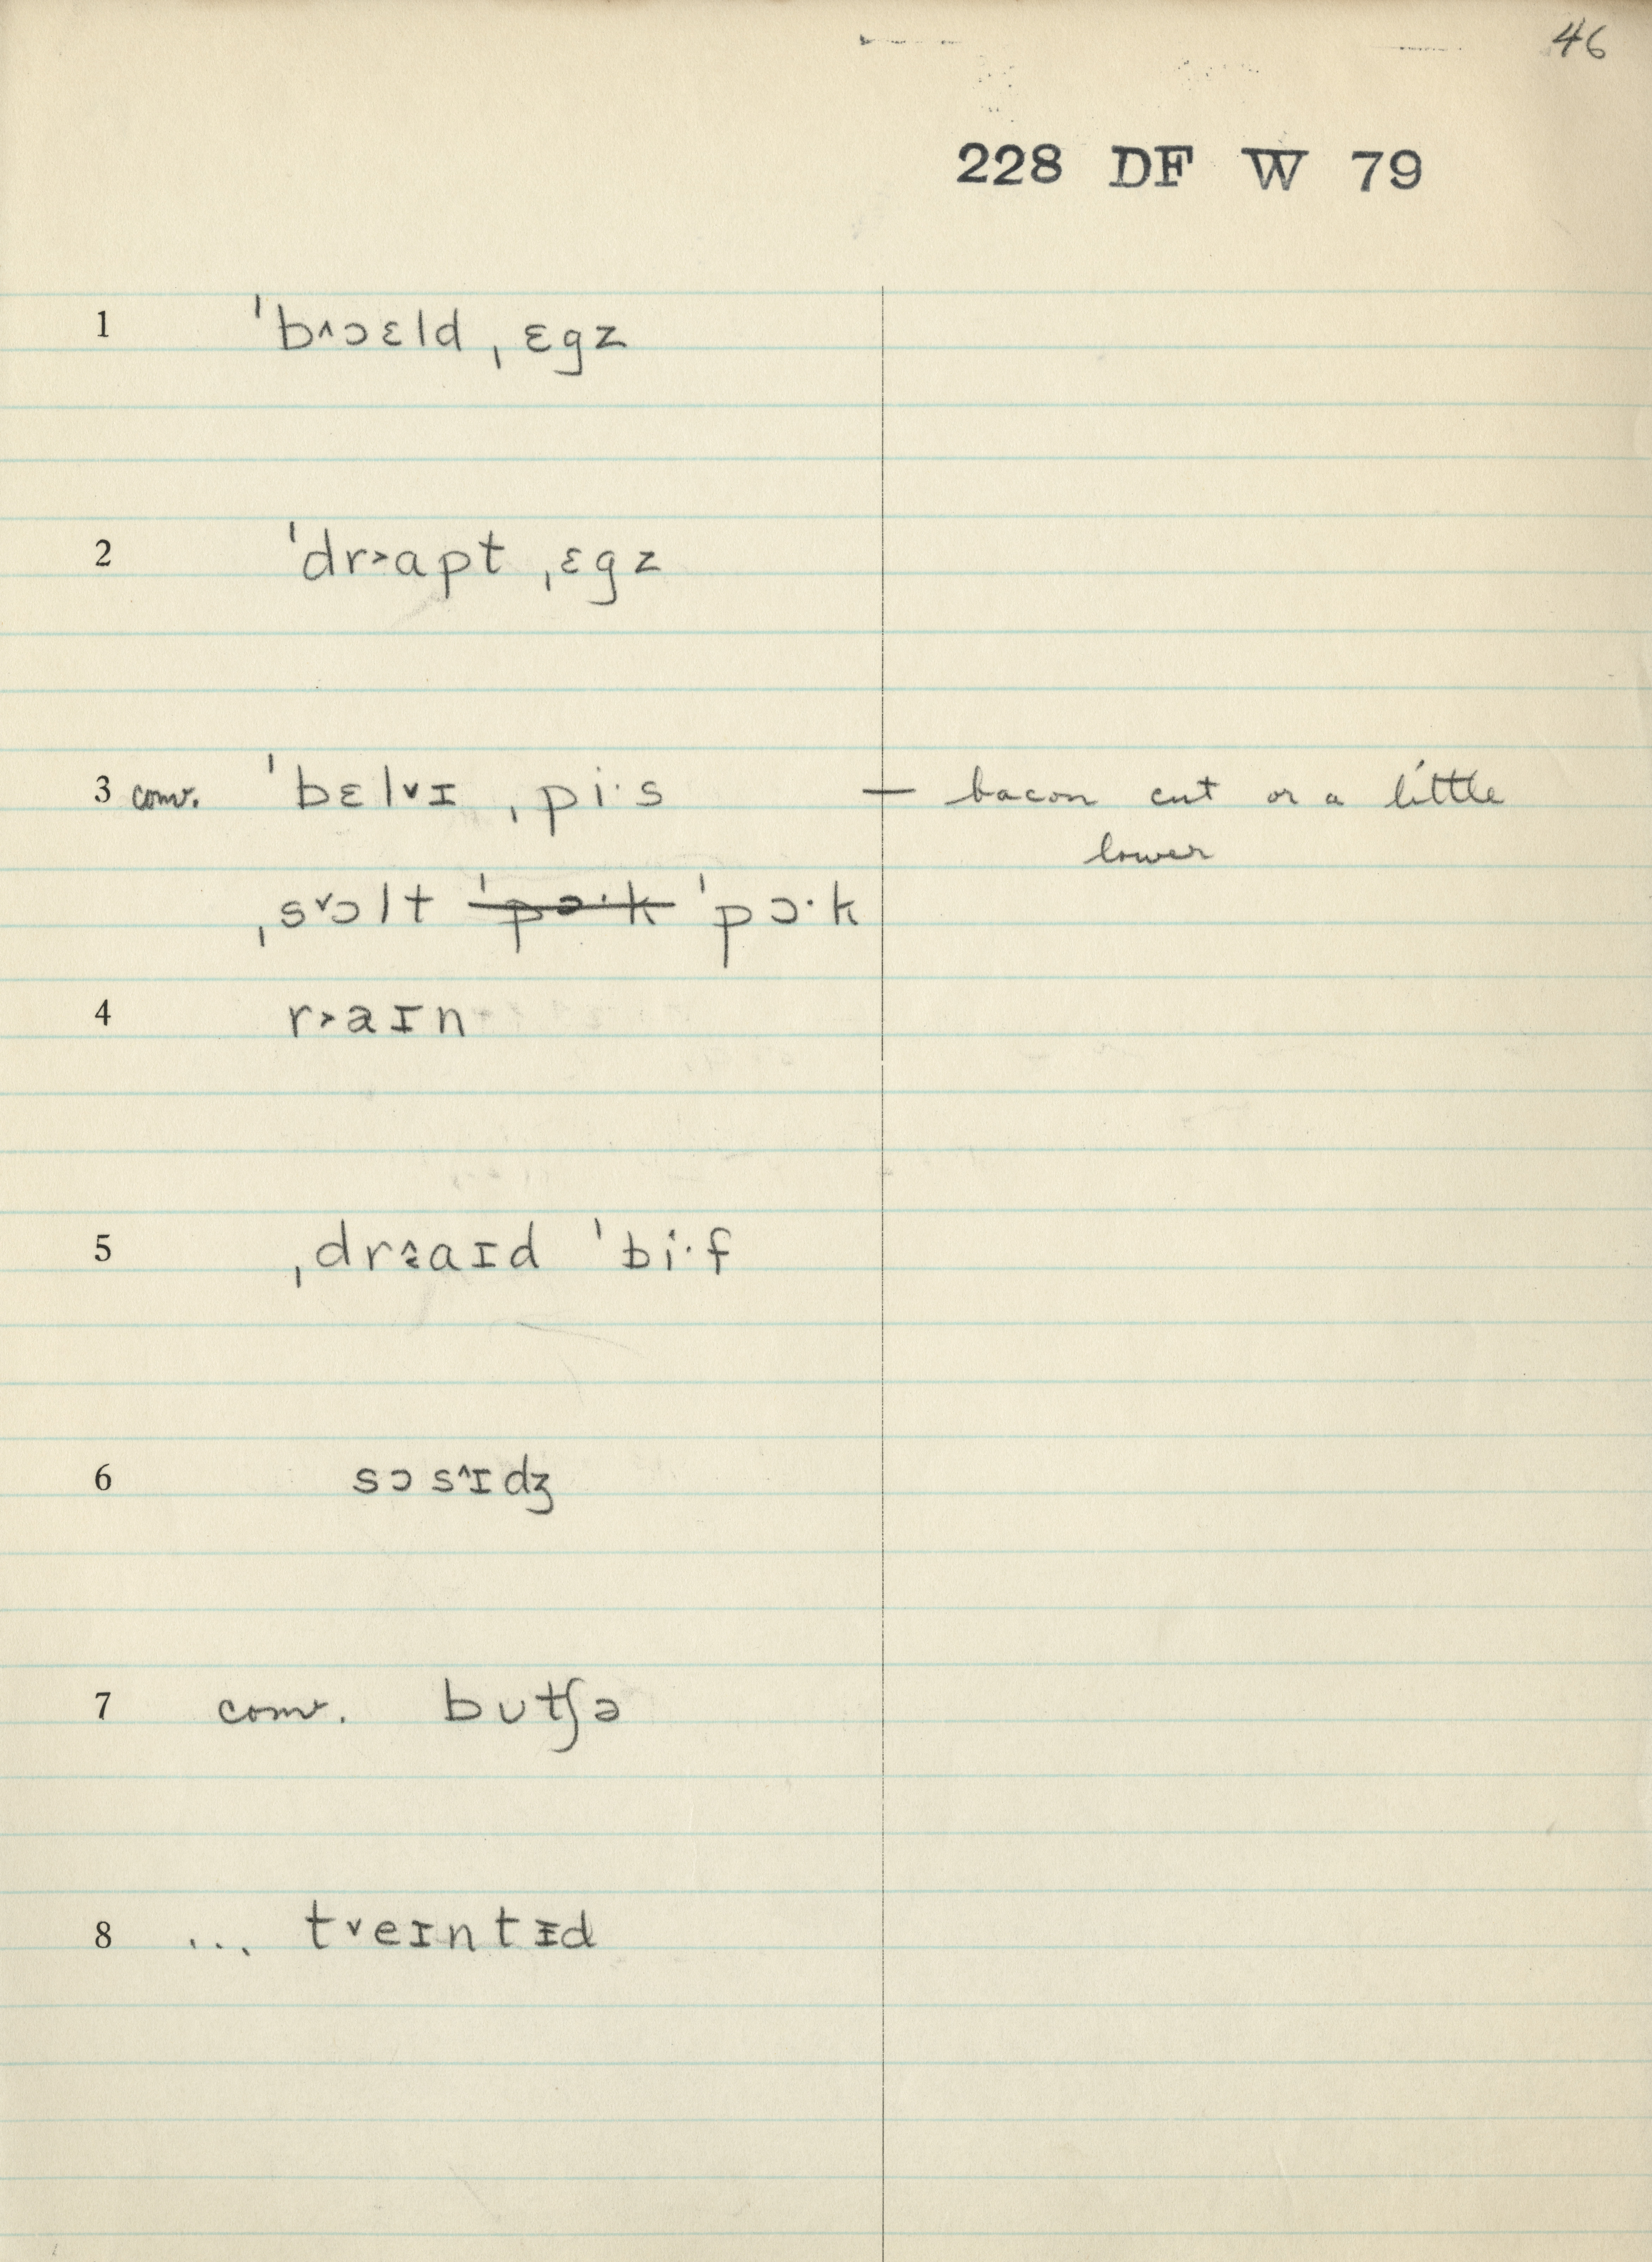 46
228 DF W 79
1 ˈb˄ɔɛld ˌɛgz
2 ˈdr˃apt ˌɛgz
3 conv. ˈbɛl˅ɪ ˌpi·s — bacon cut or a little
lower
ˌs˅ɔlt ˈpɔ·k ˈpɔ·k
4 r˃aɪn
5 ˌdrꭿaɪd ˈbi·f
6 sɔs˄ɪdʒ
7 conv. bʊtʃə
8 ... t˅eɪntᵻd